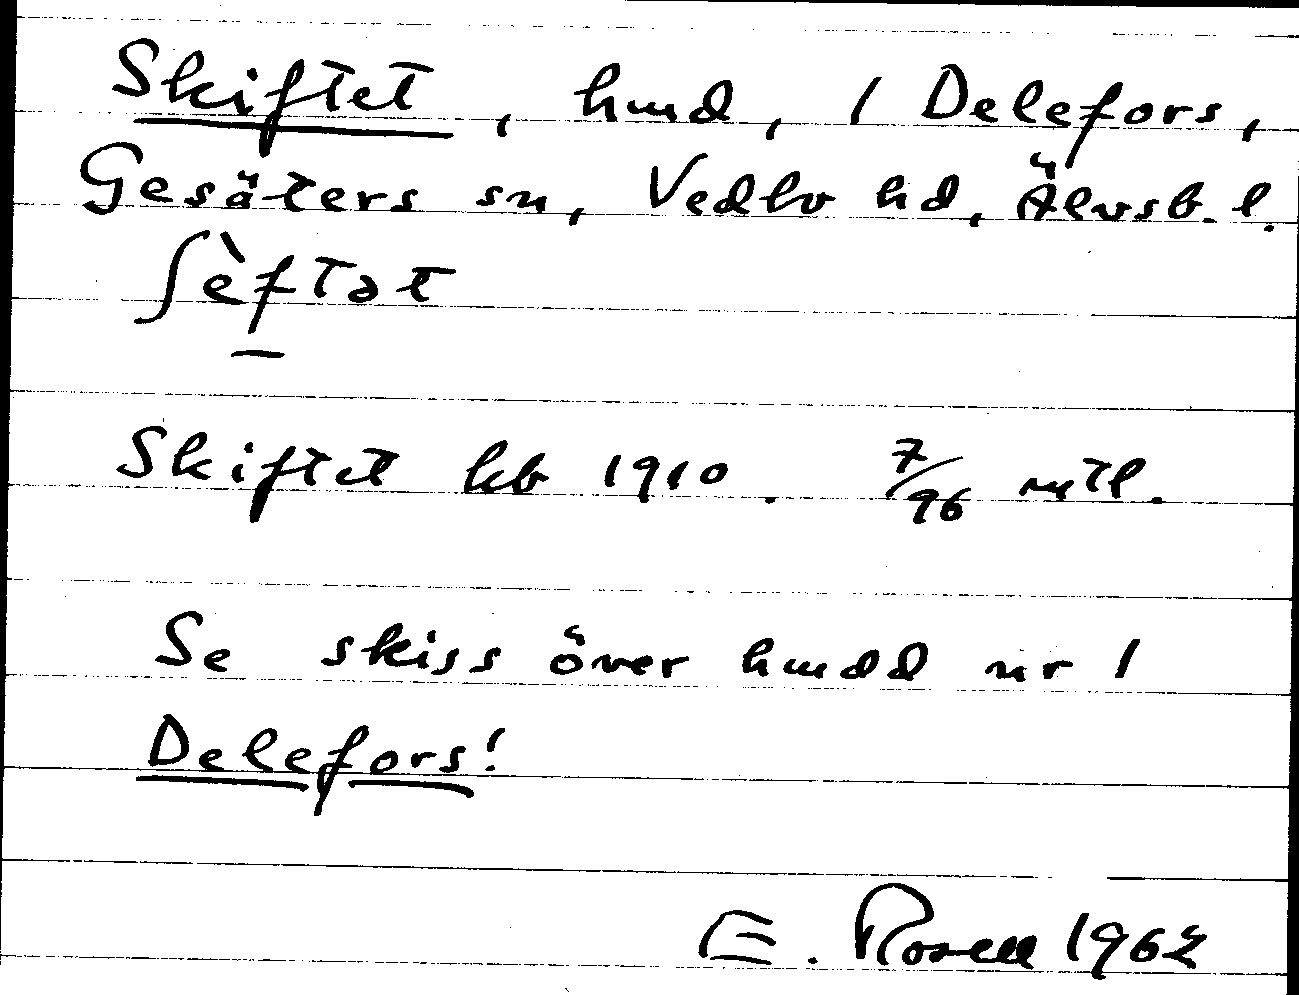 Skiftet, hmd, 1 Delefors,
Gesäters sn, Vedbo hd, Älvsb. l.
ʃèftət
Skiftet kb 1910. 7/96 mtl.
Se skiss över hmdd nr 1
Delefors!
E. Rosell 1962